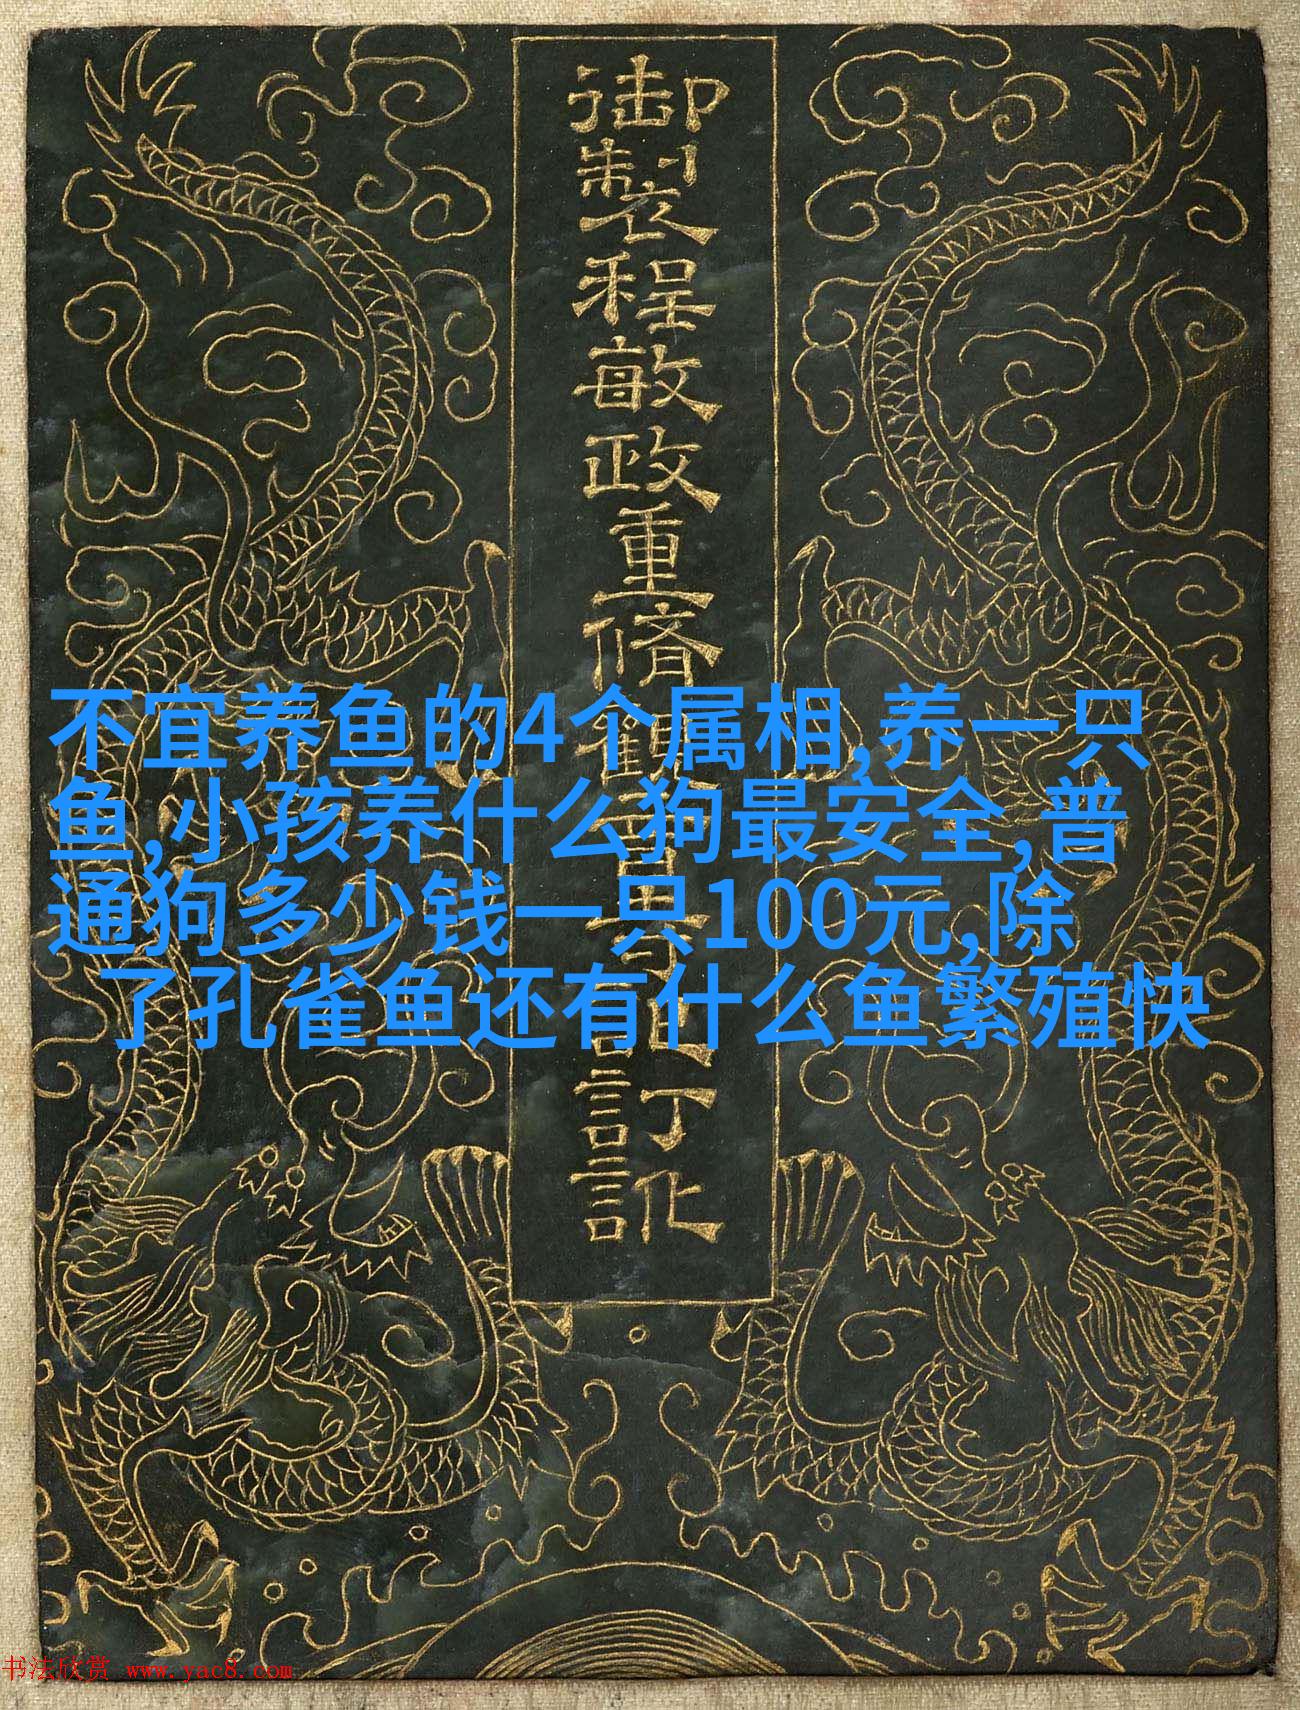 御製程敏政重脩
訂訛
不宜养鱼的4个属相,养一只
鱼,小孩养什么狗最安全,普
通狗多少钱一只100元,除
了孔雀鱼还有什么鱼繁殖快
书法欣赏 www.yac8.com